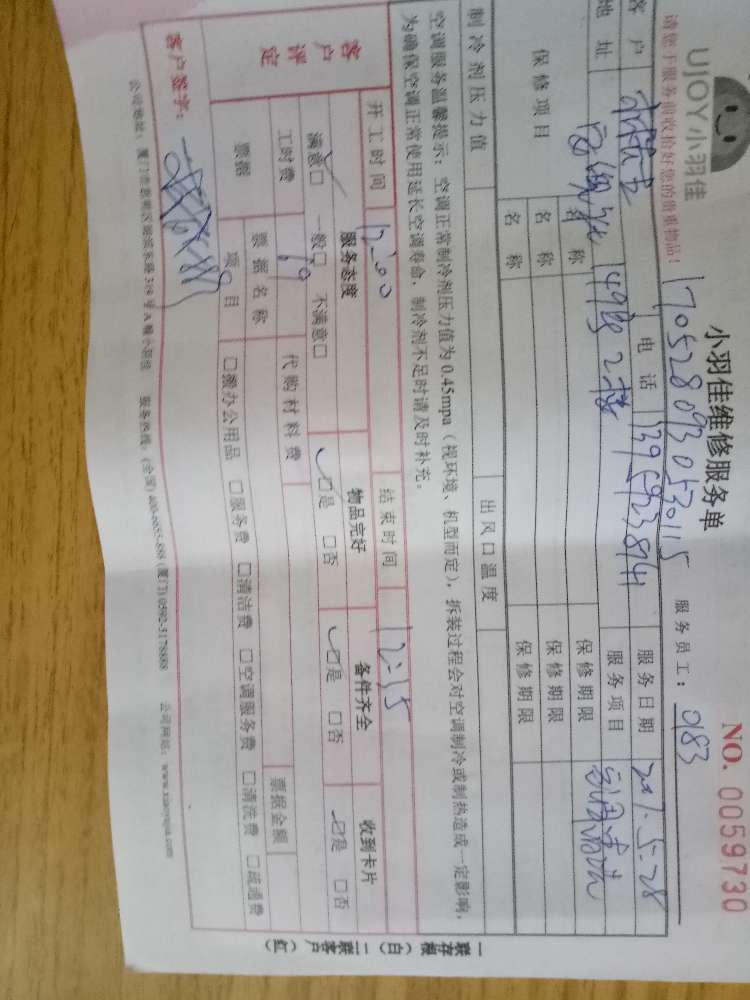 UJOY小羽佳
小羽佳维修服务单
NO. 0059730
请您于服务前收拾好您的贵重物品!
1705280930530115
服务员工: 0183
客户
电话 13959238141
服务日期 2017.5.28
地址
49号2楼
服务项目 空调清洗
保修项目
名称
保修期限
名称
保修期限
名称
保修期限
制冷剂压力值
出风口温度
空调服务温馨提示: 空调正常制冷剂压力值为0.45mpa（视环境、机型而定），拆装过程会对空调制冷或制热造成一定影响,
为确保空调正常使用延长空调寿命，制冷剂不足时请及时补充。
开工时间 12:00
结束时间 12:35
客户评定
服务态度 物品完好 备件齐全 收到卡片
满意☑ 一般□ 不满意□ ☑是 □否 ☑是 □否 ☑是 □否
工时费
代购材料费
票据金额
票据
票据名称
项目
□搬办公用品 □服务费 □清洁费 □空调服务费 □清洗费 □疏通费
客户签字:
服务热线: (全国) 400-6655-888 (厦门) 0592-5178888
公司网站: www.xiaoyujia.com
一联存根（白）二联客户（红）